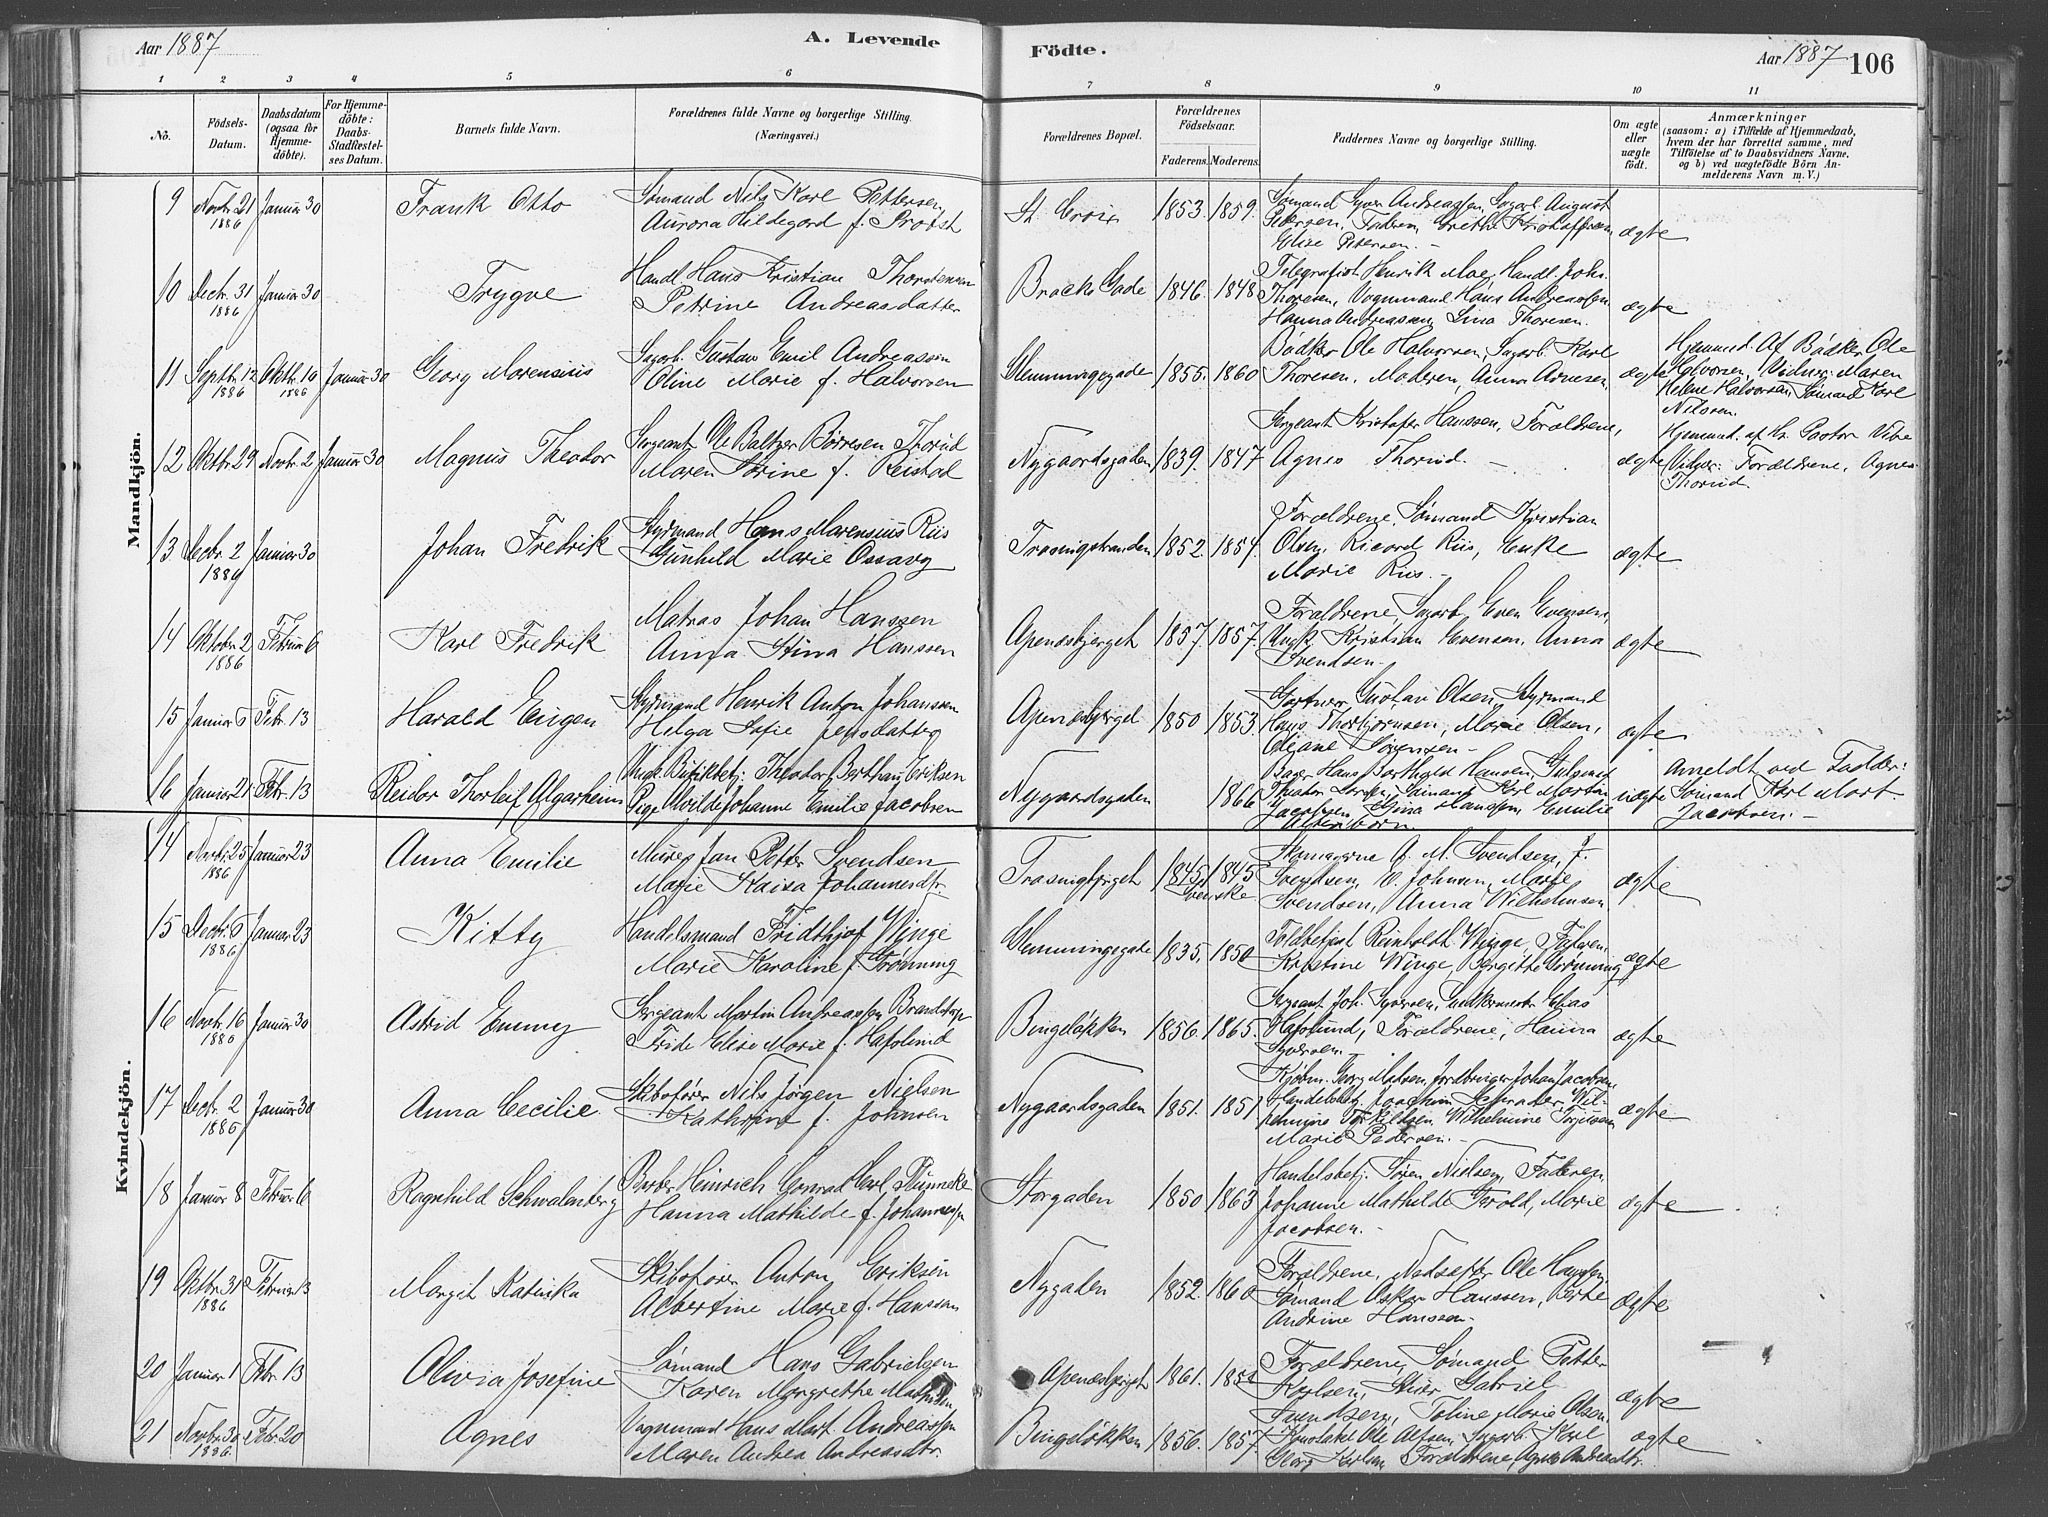 Aar 1887
A. Levende
Födte.
Aar 1887
106
1 2 3 4 5 6 7 8 9 10 11
No.
Födsels-
Datum.
Daabsdatum
(ogsaa for
Hjemme-
döbte).
For Hjemme-
döbte:
Daabs-
Stadfæstel-
ses Datum.
Barnets fulde Navn.
Forældrenes fulde Navne og borgerlige Stilling.
(Næringsvei.)
Forældrenes Bopæl.
Forældrenes
Födselsaar.
Faderens. Moderens.
Faddernes Navne og borgerlige Stilling.
Om ægte
eller
uægte
födt.
Anmærkninger
(saasom: a) i Tilfælde af Hjemmedaab,
hvem der har forrettet samme, med
Tilföielse af to Daabsvidners Navne,
og b) ved uægtefödte Börn An-
melderens Navn m. V.)
Mandkjön.
9 Novbr. 21 Januar 30 Frank Otto
1886
Sömand Nils Karl Pettersen
Aurora Hildegard f. Probst
St. Croix 1853. 1859.
Sömand Syver Andreassen, Sagarb. August
Petersen, Faderen, Grethe Kristoffersen
Elise Petersen. -
ægte
10 Decbr. 31 Januar 30 Trygve
1886
Handl. Hans Kristian Thorstensen
Petrine Andreasdatter
Brochs Gade 1846. 1848
Telegrafist Henrik Moe, Handl. Johs.
Thoresen, Vognmand Hans Andreassen
Hanna Andreassen, Lina Thoresen.
ægte
11 Septbr. 12 Oktbr. 10 Januar 30 Georg Marensius
1886 1886
Sagarb. Gustav Emil Andreassen
Oline Marie f. Halvorsen
Glemmingegade 1855. 1860
Bödker Ole Halvorsen, Sagarb. Karl
Thoresen, Moderen, Anna Arnesen
ægte
Hjemmed. Af Bödker Ole
Halvorsen, Vidner: Maren
Helene Halvorsen, Sömand Karl
Nilssen.
12 Oktbr. 29 Novbr. 2 Januar 30 Magnus Theodor
Sergeant Ole Baltzer Börresen Thorud
Maren Sörine f. Reistad
Nygaardsgaden 1839. 1847
Sergeant Kristofer Hanssen, Forældrene,
Agnes Thorud. -
ægte
Hjemmed. af Hr. Pastor Vibe
Vidner: Forældrene, Agnes
Thorud.
13. Decbr. 2 Januar 30 Johan Fredrik
1886
Styrmand Hans Marensius Riis
Gunhild Marie Ossavg
Trosvigstranden 1852. 1854.
Forældrene, Sömand Kristian
Olsen, Ricard Riis, Enke
Marie Riis. -
ægte
14 Oktobr. 2 Februar 6 Karl Fredrik
1886
Matros Johan Hanssen
Anna Stina Hanssen
Apenæsbjerget 1857. 1857.
Forældrene, Sagarb. Even Evensen,
Ungk. Kristian Evensen, Anna
Svendsen.
ægte
15 Januar 6 Febr. 13 Harald Eugen
Styrmand Henrik Anton Johanssen
Helga Sofie Jensdatter
Apenæsbjerget 1850 1853.
Gartner Gustav Olsen, Styrmand
Hans Thorbjörnsen, Marie Olsen,
Oleane Sörensen -
ægte
16 Januar 21 Febr. 13 Reidar Thorleif Algarheim
Ungk. Butikbetj. Theodor Berthau Eriksen
Pige Alvilde Johanne Emilie Jacobsen
Nygaardsgaden 1866
Bager Hans Barthold Hansen,
Theodor Larsen, Sömand Karl Martin
Jacobsen, Gina Hanssen, Emilie
uægte
Anmeldt ved Fadder:
Sömand Karl Mart.
Jacobsen. -
Kvindekjön.
14 Novbr. 25 Januar 23 Anna Emilie
1886
Murer Jan Petter Svendsen
Marie Kaisa Johannesdtr.
Trosvigbjerget 1845. 1845
Svenske
Skomagerne A. M. Svendsen, J.
Svendsen, C. Johnsen, Marie
Svendsen, Anna Wilhelmsen
ægte
15 Decbr. 6 Januar 23 Kitty
1886
Handelsmand Fridthjof Winge
Marie Karoline f. Grönning
Glemmingegade 1835. 1850
Toldbetjent Reinholdt Winge, Faderen,
Kristine Winge, Bergitte Grönning
ægte
16 Novbr. 16 Januar 30 Astrid Emmy
1886
Sergeant Martin Andreassen Brandstorp
Frida Elise Marie f. Hafslund
Bingelökken 1856. 1865.
Sergeant Joh. Syversen, Snedkermester Elias
Hafslund, Forældrene, Hanna
Syversen -
ægte
17 Decbr. 2 Januar 30 Anna Cecilie.
1886
Skibsförer Nils Jörgen Nielsen
Kathrine f. Johnsen
Nygaardsgaden 1851. 1851
Kjöbm. Georg Madsen, Jordbruger Johan Jacobsen
Handelsbetj. Joachim Schrader, Wil-
helmine Torkildsen, Wilhelmine Torjussen
Marie Pedersen. -
ægte
18 Januar 8 Februar 6 Ragnhild Schwalenberg
Barber Heinrich Conrad Carl Plünneke
Hanna Mathilde f. Johannessen
Storgaden 1850 1863
Handelsbetj. Sören Nielsen, Faderen,
Johanne Mathilde Gerold, Marie
Jacobsen. -
ægte
19 Oktbr. 31 Februar 13 Margit Katinka
1886
Skibsförer Anton Eriksen
Albertine Marie f. Hanssen
Nygaden 1852. 1860
Forældrene, Ole Hanssen,
Sömand Oskar Hanssen, Berte
Andrine Hanssen.
ægte
20 Januar 1 Febr. 13 Olivia Josefine
Sömand Hans Gabrielsen
Karen Margrethe
Apenæsbjerget 1861. 1852
Forældrene, Sömand Petter
Karlsen, Gabriel
Svendsen, Toline Marie Olsen
ægte
21 Novbr. 30 Febr. 20 Agnes
1886
Vognmand Hans Mart. Andreassen
Maren Andrea Andreasdtr.
Bingelökken 1856. 1857
Konstabel Ole Olsen, Sagarb. Karl
Georg Karlsen, Forældrene, Agnes Andreasdtr.
ægte